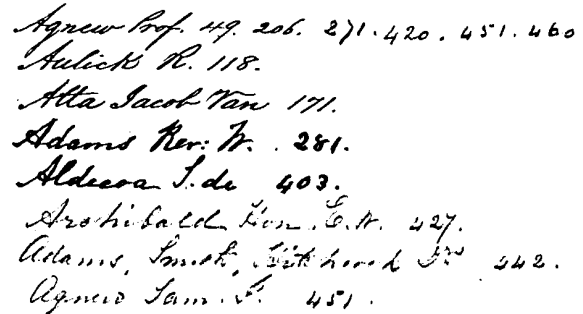 Agnew Prof. 49. 206. 271. 420. 451. 460
Aulick R. 118.
Atta Jacob Van 171.
Adams Rev: W. 281.
Aldecoa S. de 403.
Archibald Hon. E. 427.
Adams, Smith, 442.
Agnew Sam. 451.